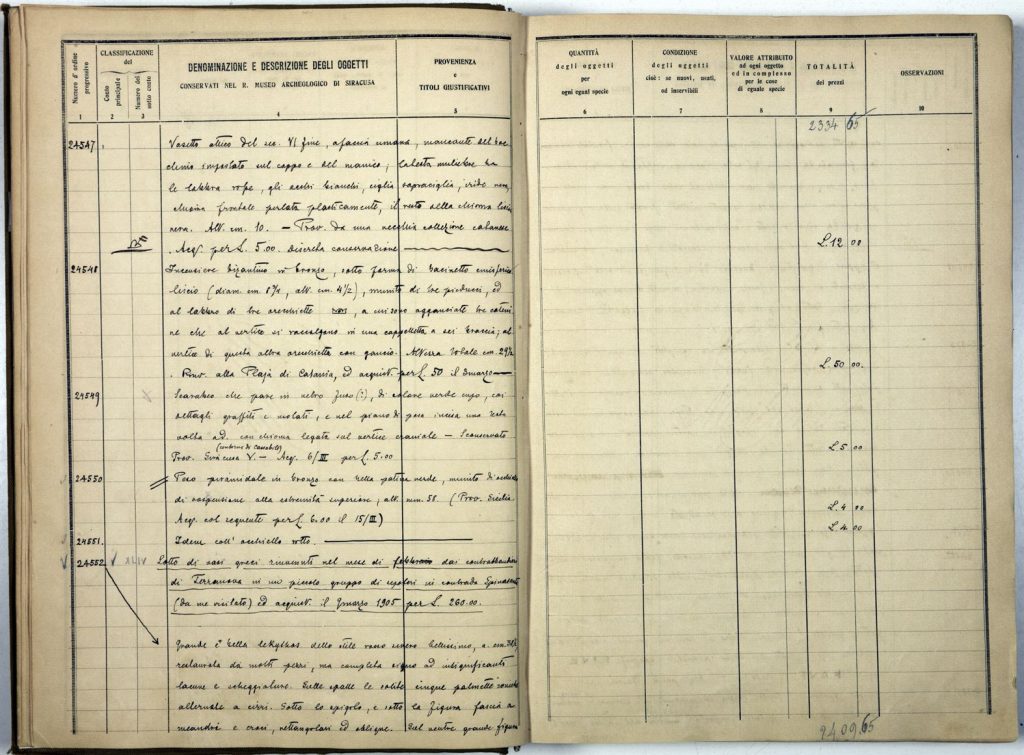 Numero d'ordine progressivo
CLASSIFICAZIONE
del
Conto principale
Numero del sotto conto
DENOMINAZIONE E DESCRIZIONE DEGLI OGGETTI
CONSERVATI NEL R. MUSEO ARCHEOLOGICO DI SIRACUSA
PROVENIENZA
e
TITOLI GIUSTIFICATIVI
1 2 3 4 5
24547 Vasetto attico del sec. VI fine, a faccia umana, mancante del
impostato sul cappo e del manico; la testa muliebre ha
le labbra rosse, gli occhi bianchi, ciglia sopraciglia, iride nera,
frontale perlata plasticamente, il resto della chioma liscia
nera. Alt. cm. 10. — Prov. da una vecchia collezione catanese
Acq. per L. 5.00. Discreta conservazione
24548 Incensiere bizantino in bronzo, sotto forma di bacinetto emisferico
liscio (diam. cm 8 3/4, alt. cm. 4 1/2), munito di tre pieducci, ed
al labbro di tre orecchiette, a cui sono agganciate tre cateni
ne che al vertice si raccolgono in una cappelletta a sei braccia; al
vertice di questa altra orecchietta con gancio. Altezza totale cm. 29 1/2
. Prov. alla Plaja di Catania, ed acquist. per L. 50 il 3 marzo
24549 Scarabeo che pare in vetro fuso (?), di colore verde cupo, coi
dettagli graffiti e molati, e nel piano di posa incisa una testa
volta ad. con chioma legata sul vertice craniale — Sconservato
(contorno di
Prov. Siracusa V. — Acq. 6/III per L. 5.00
24550 Peso piramidale in bronzo con bella patina verde, munito di occhiello
di sospensione alla estremità superiore; alt. mm. 58. (Prov. Sicilia
Acq. col seguente per L. 6.00 il 15/III)
24551. Idem coll' occhiello rotto.
V 24552 V XLIV Lotto di vasi greci rinvenuti nel mese di febbraio dai contrabbandieri
di Terranova in un piccolo gruppo di sepolcri in contrada Spinasanta
(da me visitato) ed acquist. il 9 marzo 1905 per L. 260.00.
Grande e bella lekythos dello stile rosso severo bellissimo, a. cm. 38 1/2
restaurata da molti pezzi, ma completa sino ad insignificanti
lacune e scheggiature. Sulle spalle le solite cinque palmette
alternate a cirri. Sotto lo spigolo, e sotto la figura fascia a
meandri e croci, rettangolari ed oblique. Nel ventre grande figura
QUANTITÀ
degli oggetti
per
ogni egual specie
CONDIZIONE
degli oggetti
cioè: se nuovi, usati,
od inservibili
VALORE ATTRIBUITO
ad ogni oggetto
ed in complesso
per le cose
di eguale specie
TOTALITÀ
dei prezzi
OSSERVAZIONI
6 7 8 9 10
2334 65
L. 12 00
L. 50 00.
L. 5 00
L. 4 00
L. 4.00
2409.65